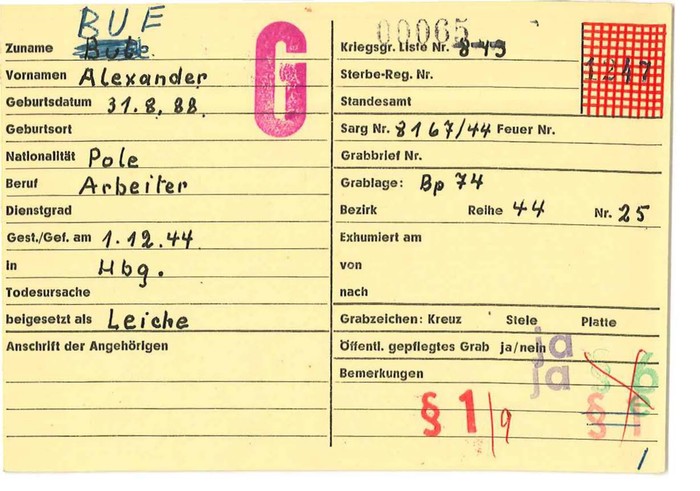 BUF
Zuname
Vornamen Alexander
Geburtsdatum 31.8.88.
Geburtsort
Nationalität Pole
Beruf Arbeiter
Dienstgrad
Gest./Gef. am 1.12.44.
in Hbg.
Todesursache
beigesetzt als Leiche
Anschrift der Angehörigen
G
00065
Kriegsgr. Liste Nr. 849
1247
Sterbe-Reg. Nr.
Standesamt
Sarg Nr. 8167/44 Feuer Nr.
Grabbrief Nr.
Grablage: Bp 74
Bezirk Reihe 44 Nr. 25
Exhumiert am
von
nach
Grabzeichen: Kreuz Stele Platte
Öffentl. gepflegtes Grab ja/nein ja
Bemerkungen ja
§ 1/9